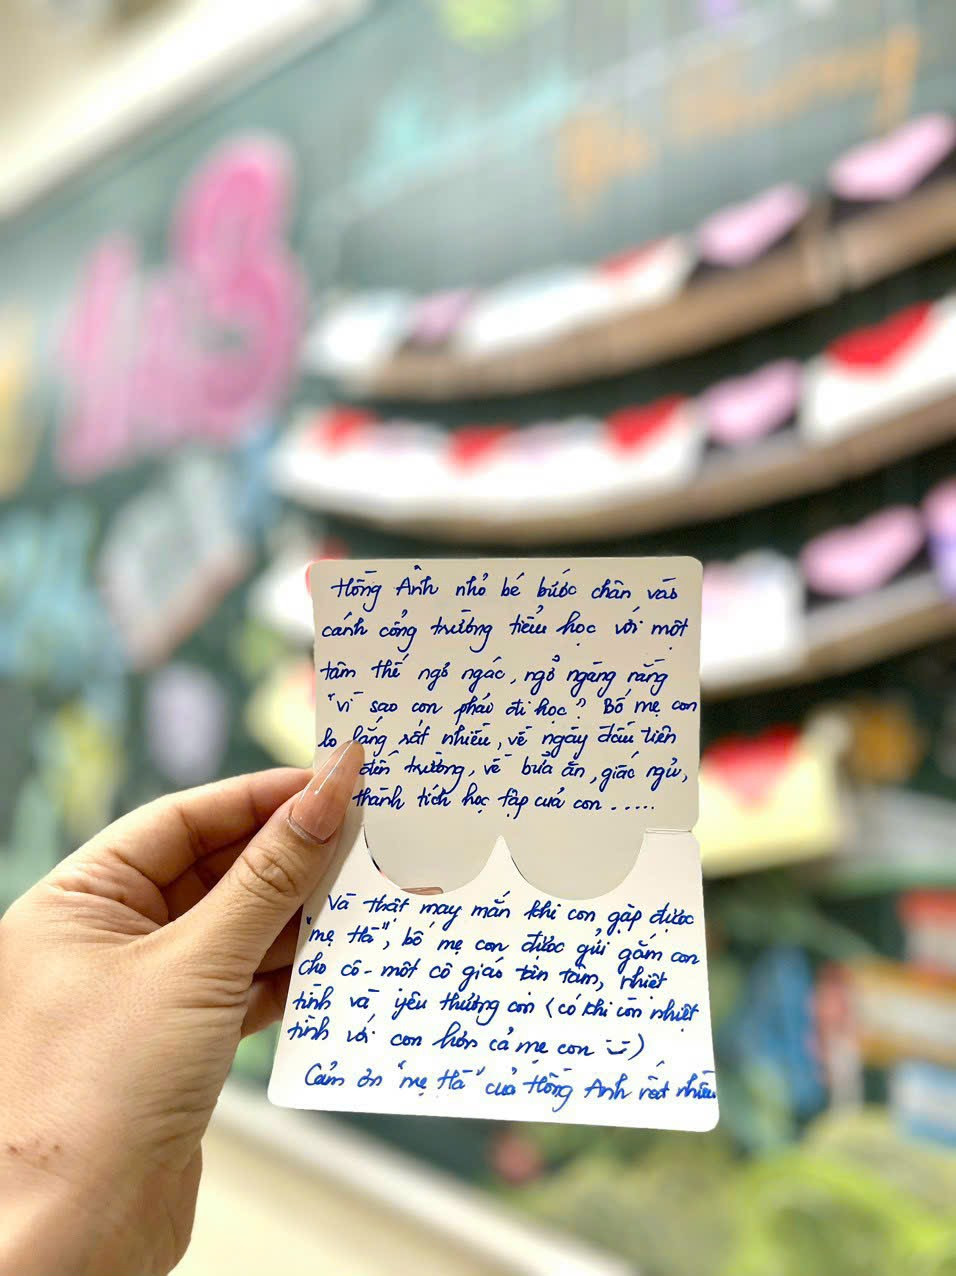 1A3
Hồng Anh nhỏ bé bước chân vào
cánh cổng trường tiểu học với một
tâm thế ngơ ngác, ngỡ ngàng rằng
"vì sao con phải đi học?" Bố mẹ con
lo lắng rất nhiều, về ngày đầu tiên
đến trường, về bữa ăn, giấc ngủ,
thành tích học tập của con .....
Và thật may mắn khi con gặp được
"mẹ Hà", bố mẹ con được gửi gắm con
cho cô - một cô giáo tận tâm, nhiệt
tình và yêu thương con (có khi còn nhiệt
tình với con hơn cả mẹ con :))
Cảm ơn "mẹ Hà" của Hồng Anh rất nhiều